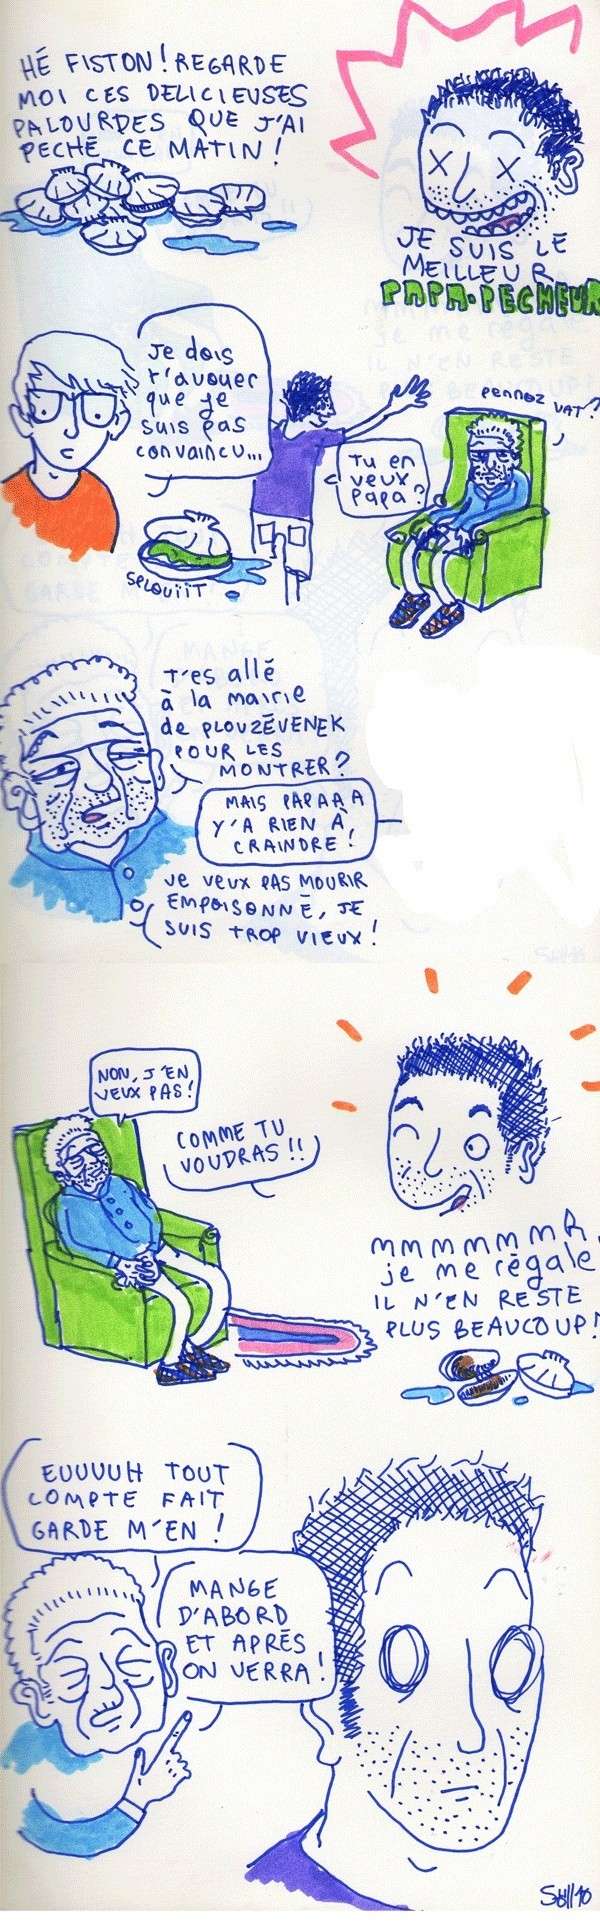 HÉ FISTON! REGARDE
MOI CES DELICIEUSES
PALOURDES QUE J'AI
PECHÉ CE MATIN!
JE SUIS LE
MEILLEUR
PAPA-PECHEUR
Je dois
t'avouer
que je
suis pas
convaincu...
TU en
veux
Papa?
Pennoz
vat?
SPLOUiiT
T'es allé
à la mairie
de PLOUZÉVENEK
POUR LES
MONTRER?
MAIS PAPAAA
Y'A RIEN À
CRAINDRE!
Je veux PAS MOURIR
EMPOISONNÉ, JE
SUIS TROP VIEUX!
NON, J'EN
VEUX PAS!
COMME TU
VOUDRAS!!
MMMMMMMR
je me régale
IL N'EN RESTE
PLUS BEAUCOUP!
EUUUUH TOUT
COMPTE FAIT
GARDE M'EN!
MANGE
D'ABORD
ET APRÉS
ON VERRA!